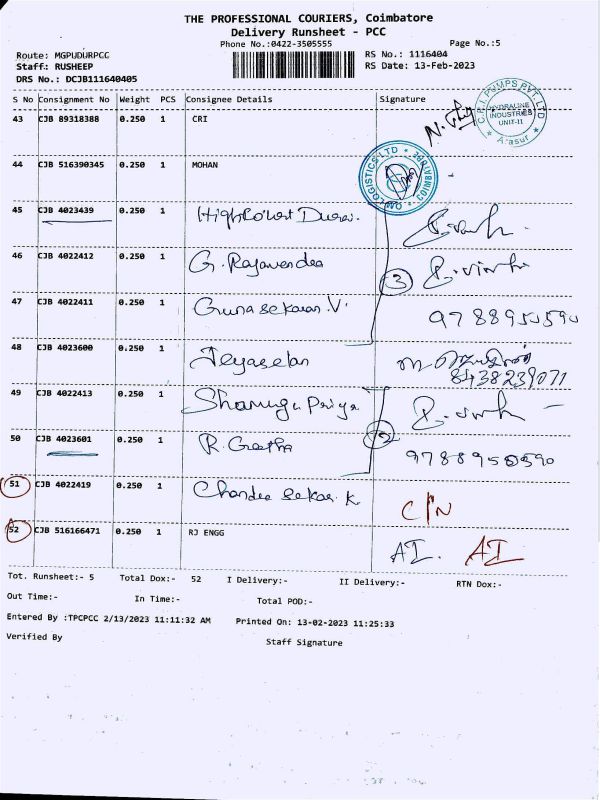 THE PROFESSIONAL COURIERS, Coimbatore
Delivery Runsheet - PCC
Phone No.:0422-3505555
Page No.:5
Route: MGPUDURPCC
RS No.: 1116404
Staff: RUSHEEP
RS Date: 13-Feb-2023
DRS No.: DCJB111640405
S No Consignment No Weight PCS Consignee Details Signature
C.R.I. PUMPS PVT LTD
HYDRALINE
INDUSTRIES
UNIT-II
Arasur
43 CJB 89318388 0.250 1 CRI
LOGISTICS LTD
COIMBATORE
44 CJB 516390345 0.250 1 MOHAN
45 CJB 4023439 0.250 1 Durai.
46 CJB 4022412 0.250 1 G. Rajavendra
3
47 CJB 4022411 0.250 1 Gunasekaran V. 9788950590
48 CJB 4023600 0.250 1 Jeyaselan
8438239071
49 CJB 4022413 0.250 1 Shanmuga Priya
50 CJB 4023601 0.250 1 R. Geetha 9788950590
51 CJB 4022419 0.250 1 Chandra Sekar. K. C/N
52 CJB 516166471 0.250 1 RJ ENGG AI. AI
Tot. Runsheet:- 5 Total Dox:- 52 I Delivery:- II Delivery:- RTN Dox:-
Out Time:- In Time:- Total POD:-
Entered By :TPCPCC 2/13/2023 11:11:32 AM Printed On: 13-02-2023 11:25:33
Verified By Staff Signature